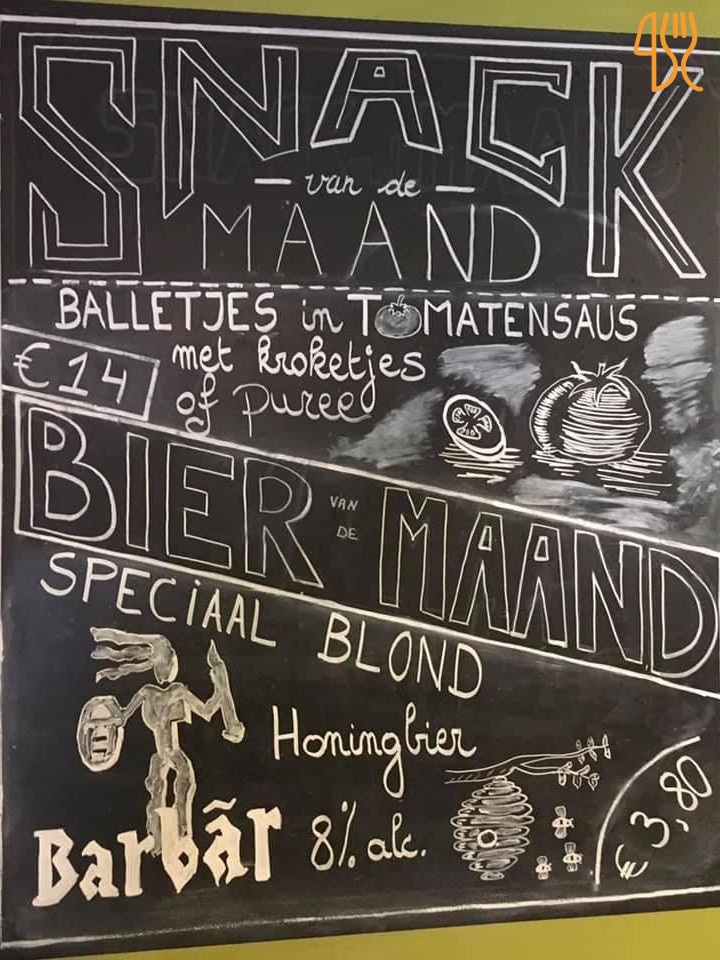 SNACK
- van de -
MAAND
BALLETJES in TOMATENSAUS
€14
met kroketjes
of puree
BIER VAN DE MAAND
SPECIAAL BLOND
Honingbier
Barbãr 8% alc.
€ 3,80